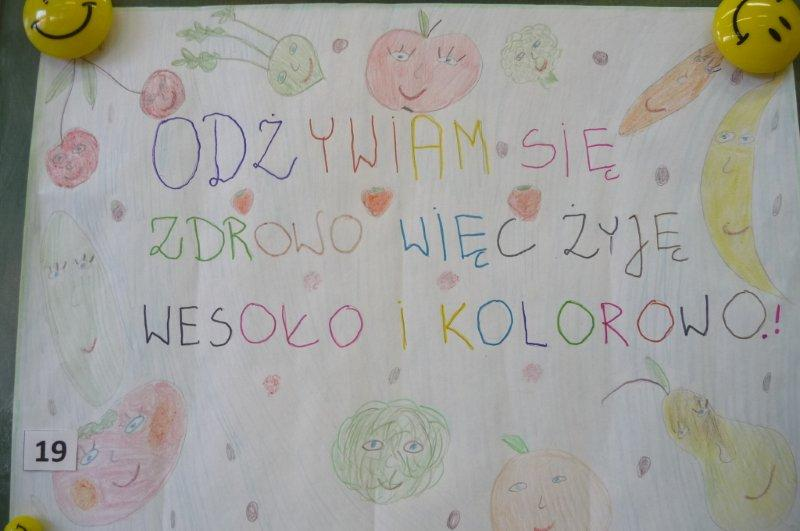 ODŻYWIAM SIĘ
ZDROWO WIĘC ŻYJĘ
WESOŁO i KOLOROWO.!
19